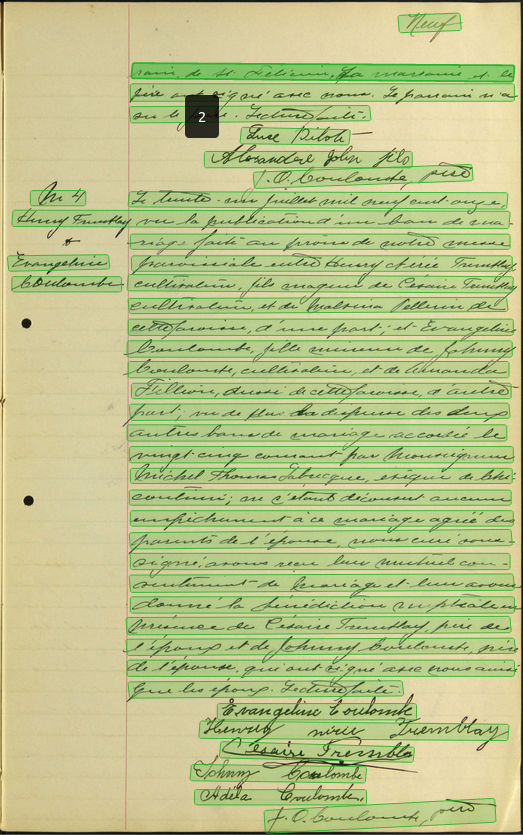 Neuf
de St. Félicien. La marraine et le
père ont signé avec nous. Le parrain n'a
su le. Lecture faite.
Luce Pilote
Alexandre Jobin fils
J. O. Coulombe, ptre
M 4
Henry Tremblay
&
Evangeline
Coulombe
Le trente-un juillet mil neuf cent onze,
vu la publication d'un ban de ma-
riage faite au prône de notre messe
paroissiale entre Henry Nérie Tremblay
cultivateur, fils majeur de Césaire Tremblay
cultivateur, et de Malvina Pelletier de
cette paroisse, d'une part; et Evangeline
Coulombe, fille mineure de Johnny
Coulombe, cultivateur, et de Amanda
Fillion, aussi de cette paroisse, d'autre
part; vu de plus la dispense des deux
autres bans de mariage accordée le
vingt cinq courant par Monseigneur
Michel Thomas Labrecque, évêque de Chi-
coutimi; ne s'étant découvert aucun
empêchement à ce mariage agréé des
parents de l'épouse, nous curé sous-
signé, avons reçu leur mutuel con-
sentement de mariage et leur avons
donné la bénédiction nuptiale en
présence de Césaire Tremblay, père de
l'époux et de Johnny Coulombe, père
de l'épouse, qui ont signé avec nous ainsi
que les époux. Lecture faite.
Evangeline Coulombe
Henry nérie Tremblay
Césaire Tremblay
Johnny Coulombe
Adéla Coulombe,
J. O. Coulombe, ptre
2